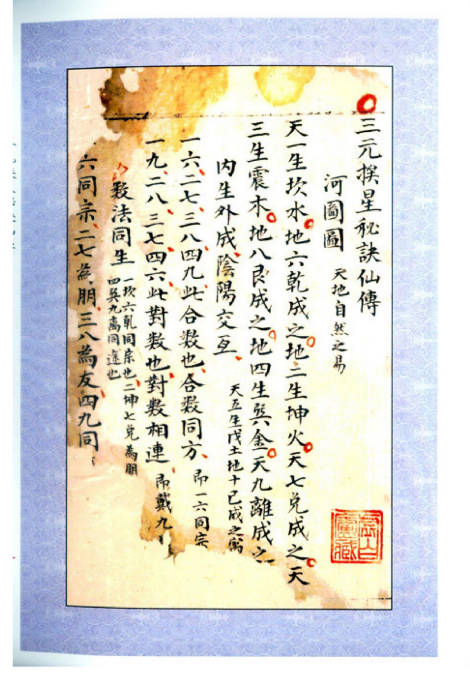 三元揆星秘訣仙傳
河圖圖 天地自然之易
天一生坎水地六乾成之地二生坤火天七兌成之天
三生震木地八艮成之地四生巽金天九離成之
內生外成陰陽交互 天五生戊土地十己成之寓
一六二七三八四九此合数也合数同方 即一六同宗
一九二八三七四六此對数也對数相連 即戴九
数法同生 一坎六乾同宗也二坤七兌為朋
四巽九离同
六同宗二七為朋三八為友四九同